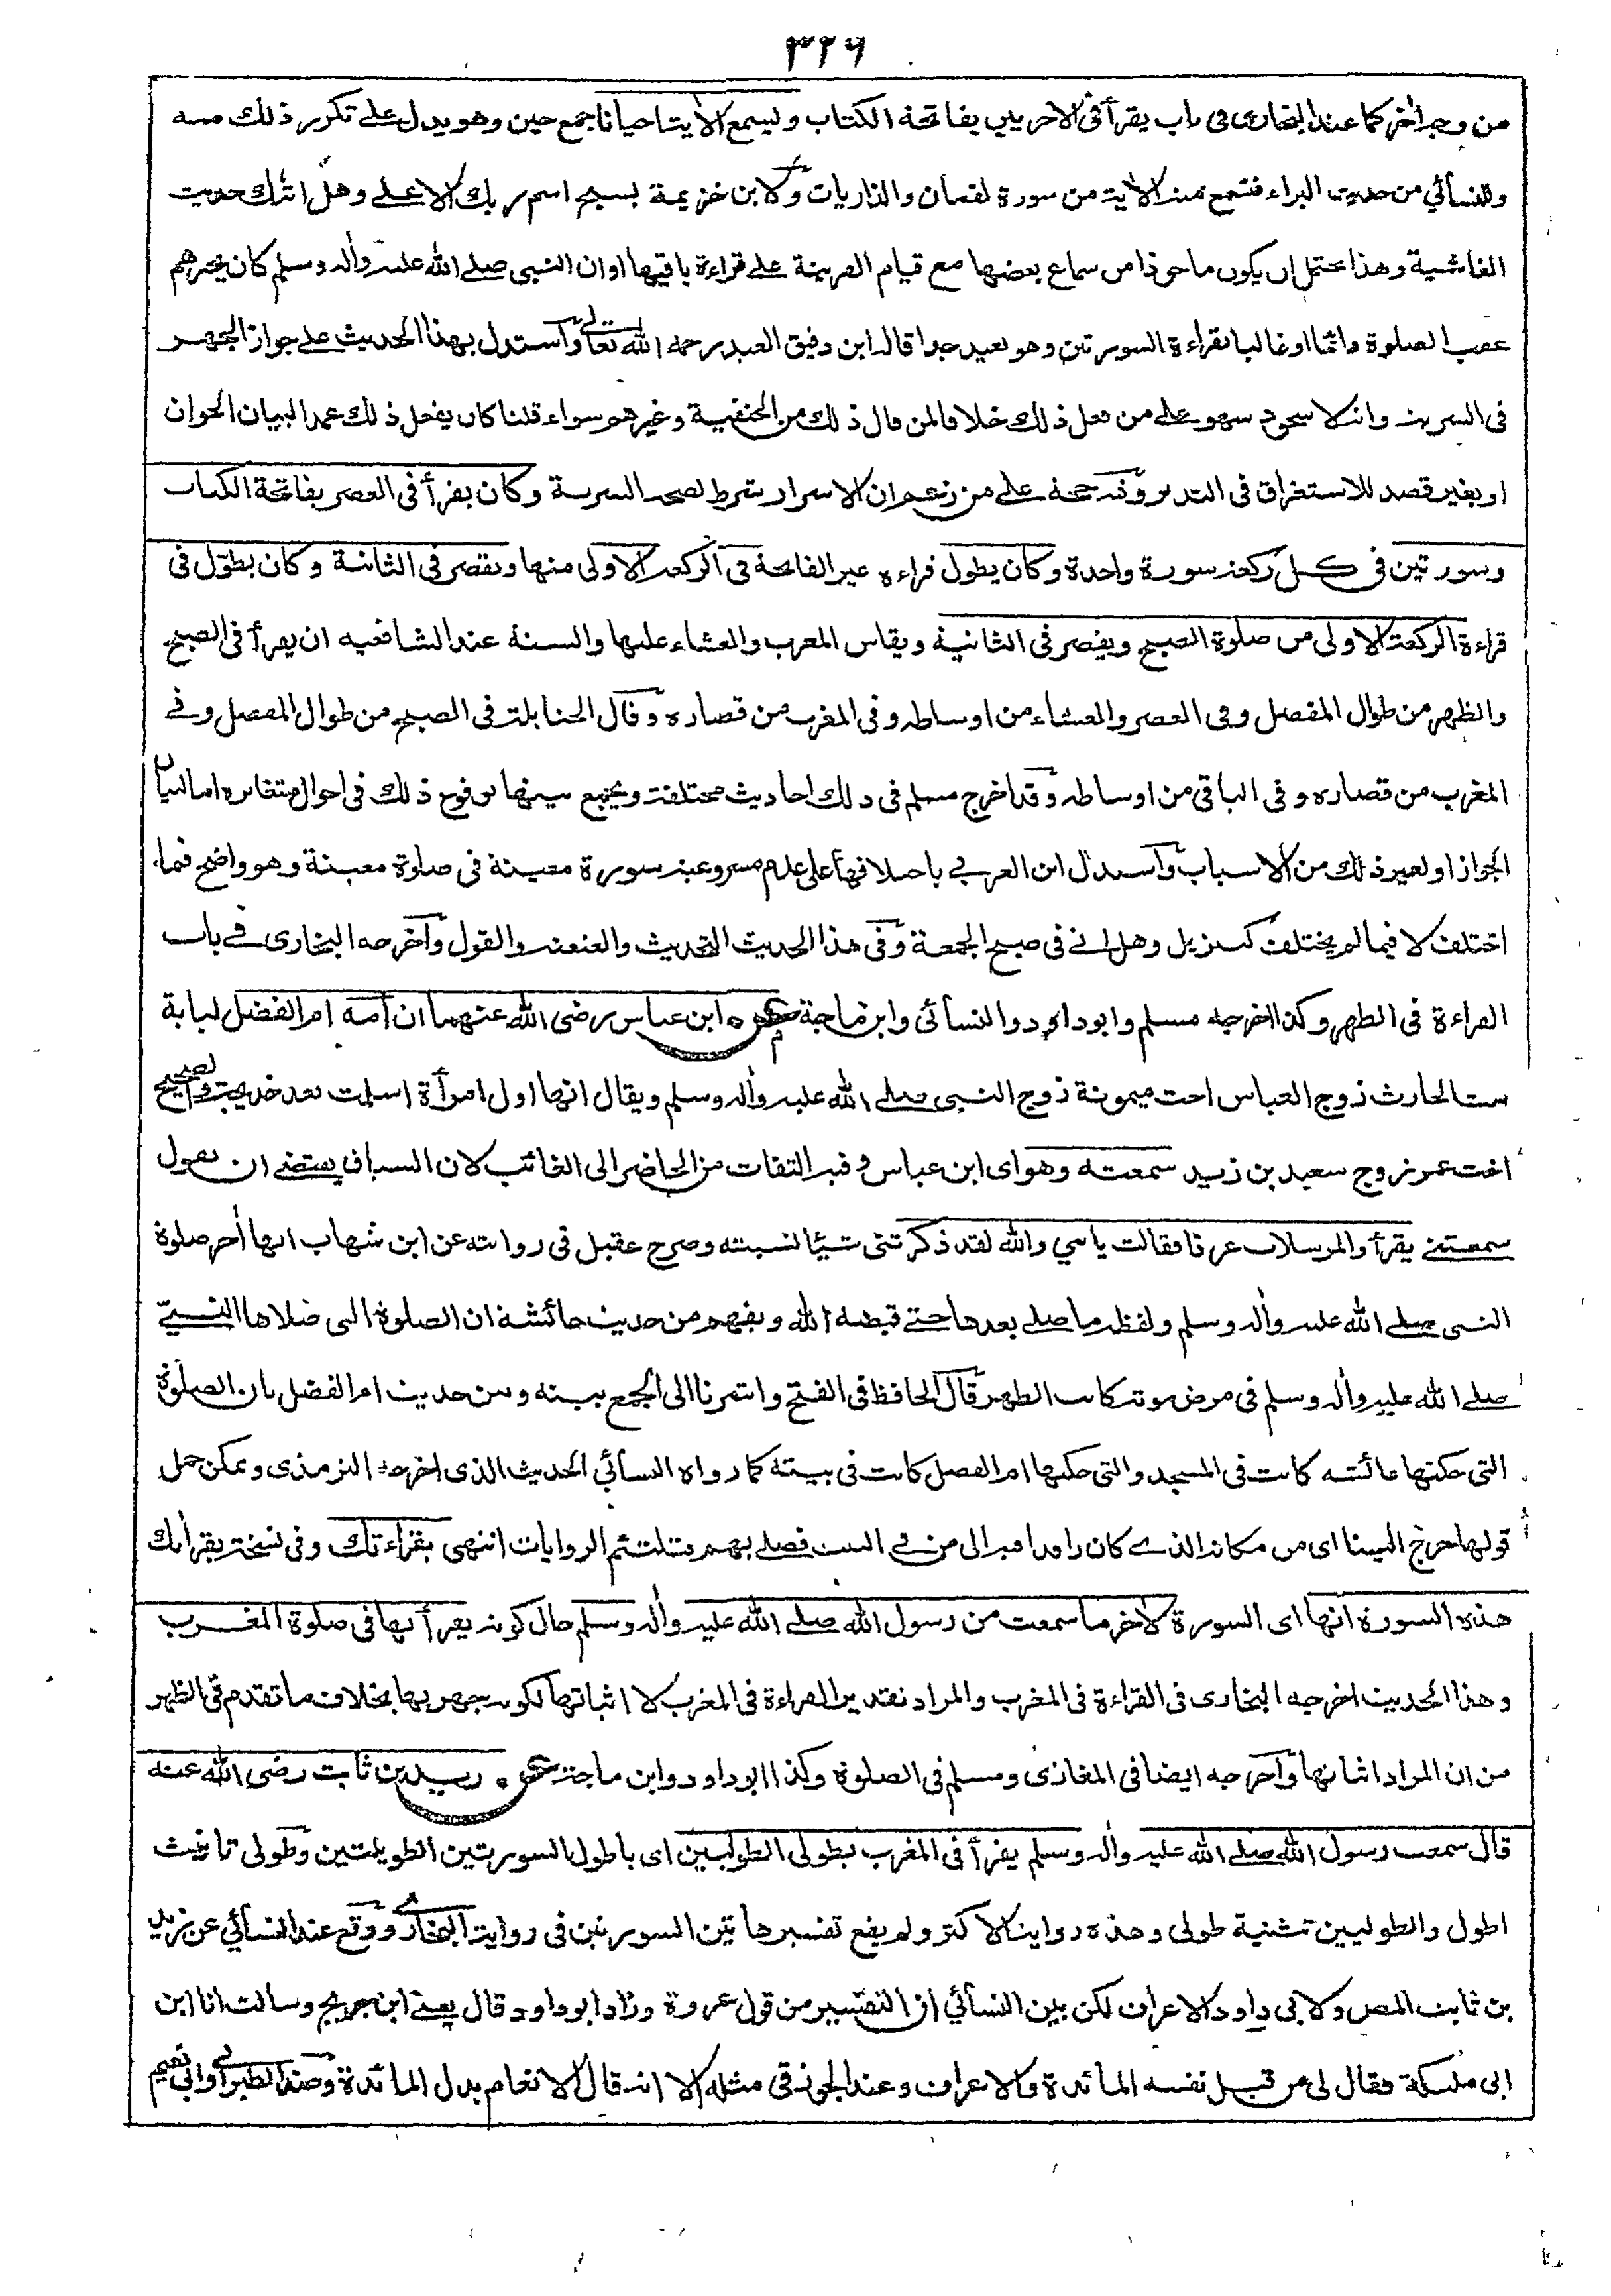 ٣٢٦
من وجه اٰخر كما عند البخارى فى باب يقرأ فى الاخريين بفاتحة الكتاب ويسمع الاٰية احيانا جمع حين وهو يدل على تكرر ذلك منه
وللنسائي من حديث البراء فنسمع منه الاٰية من سورة لقمان والذاريات ولابن خزيمة بسبح اسم ربك الاعلى وهل اتٰك حديث
الغاشية وهذا يحتمل ان يكون ماخوذا من سماع بعضها مع قيام القرينة على قراءة باقيها او ان النبى صلى الله عليه واٰله وسلم كان يخبرهم
عقب الصلوة دائما او غالبا بقراءة السورتين وهو بعيد جدا قاله ابن دقيق العيد رحمه الله تعالى واستدل بهذا الحديث على جواز الجهر
فى السرية وانه لا سجود سهو على من فعل ذلك خلافا لمن قال ذلك من الحنفية وغيرهم سواء قلنا كان يفعل ذلك عمدا لبيان الجواز
او بغير قصد للاستغراق فى التدبر وفيه حجة على من زعم ان الاسرار شرط لصحة السرية وكان يقرأ فى العصر بفاتحة الكتاب
وسورتين فى كل ركعة سورة واحدة وكان يطول قراءة غير الفاتحة فى الركعة الاولى منها ويقصر فى الثانية وكان يطوّل فى
قراءة الركعة الاولى من صلوة الصبح ويقصر فى الثانية ويقاس المغرب والعشاء عليها والسنة عند الشافعيه ان يقرأ فى الصبح
والظهر من طوال المفصل وفى العصر والعشاء من اوساطه وفى المغرب من قصاره وقال الحنابلة فى الصبح من طوال المفصل وفے
المغرب من قصاره وفى الباقى من اوساطه وقد اخرج مسلم فى ذلك احاديث مختلفة ويجمع بينها بوقوع ذلك فى احوال متغايره اما لبيان
الجواز او لغير ذلك من الاسباب واستدل ابن العربے باختلافها على عدم مشروعية سورة معينة فى صلوة معينة وهو واضح فيما
اختلف لا فيما لم يختلف كتنزيل وهل اتى فى صبح الجمعة وفى هذا الحديث التحديث والعنعنة والقول واخرجه البخارى فے باب
القراءة فى الظهر وكذا اخرجه مسلم وابو داود والنسائى وابن ماجة عن ابن عباس رضى الله عنهما ان امه ام الفضل لبابة
بنت الحارث زوج العباس اخت ميمونة زوج النبى صلے الله عليه واٰله وسلم ويقال انها اول امرأة اسلمت بعد خديجة والصحيح
اخت عمر زوج سعيد بن زيد سمعته وهو اى ابن عباس وفيه التفات من الحاضر الى الغائب لان السياق يقتضے ان يقول
سمعتنے يقرأ والمرسلات عرفا فقالت يا بني والله لقد ذكرتنى شيئا نسيته وصرح عقيل فى روايته عن ابن شهاب انها اٰخر صلوة
النبى صلے الله عليه واٰله وسلم ولفظه ما صلے بعدها حتے قبضه الله ويفهم من حديث عائشة ان الصلوة التى صلاها النبىّ
صلے الله عليه واٰله وسلم فى مرض موته كانت الظهر قال الحافظ فى الفتح واشرنا الى الجمع بينه وبين حديث ام الفضل بان الصلوة
التى حكتها عائشه كانت فى المسجد والتى حكتها ام الفضل كانت فى بيته كما رواه النسائي الحديث الذى اخرجه الترمذى ويمكن حمل
قولها خرج الينا اى من مكانه الذے كان راقدا فيه الى من فے البيت فصلے بهم فتلتئم الروايات انتهى بقراءتك وفى نسخة بقراٰنك
هذه السورة انها اى السورة لاٰخر ما سمعت من رسول الله صلے الله عليه واٰله وسلم حال كونه يقرأ بها فى صلوة المغرب
وهذا الحديث اخرجه البخارى فى القراءة فى المغرب والمراد تقدير القراءة فى المغرب لا اثباتها لكونه جهر بها بخلاف ما تقدم فى الظهر
من ان المراد اثباتها واخرجه ايضا فى المغازى ومسلم فى الصلوة وكذا ابو داود وابن ماجة عن زيد بن ثابت رضى الله عنه
قال سمعت رسول الله صلے الله عليه واٰله وسلم يقرأ فى المغرب بطولى الطوليين اى باطول السورتين الطويلتين وطولى تانيث
اطول والطوليين تثنية طولى وهذه رواية الاكثر ولم يقع تفسير هاتين السورتين فى رواية البخارى ووقع عند النسائي عن زيد
بن ثابت المص ولابى داود الاعراف لكن بين النسائي ان التفسير من قول عروة وزاد ابو داود قال يعنے ابن جريج وسالت انا ابن
ابى مليكة فقال لى من قبل نفسه المائدة والاعراف وعند الجوزقى مثله الا انه قال الانعام بدل المائدة وعند الطبرانے وابى نعيم